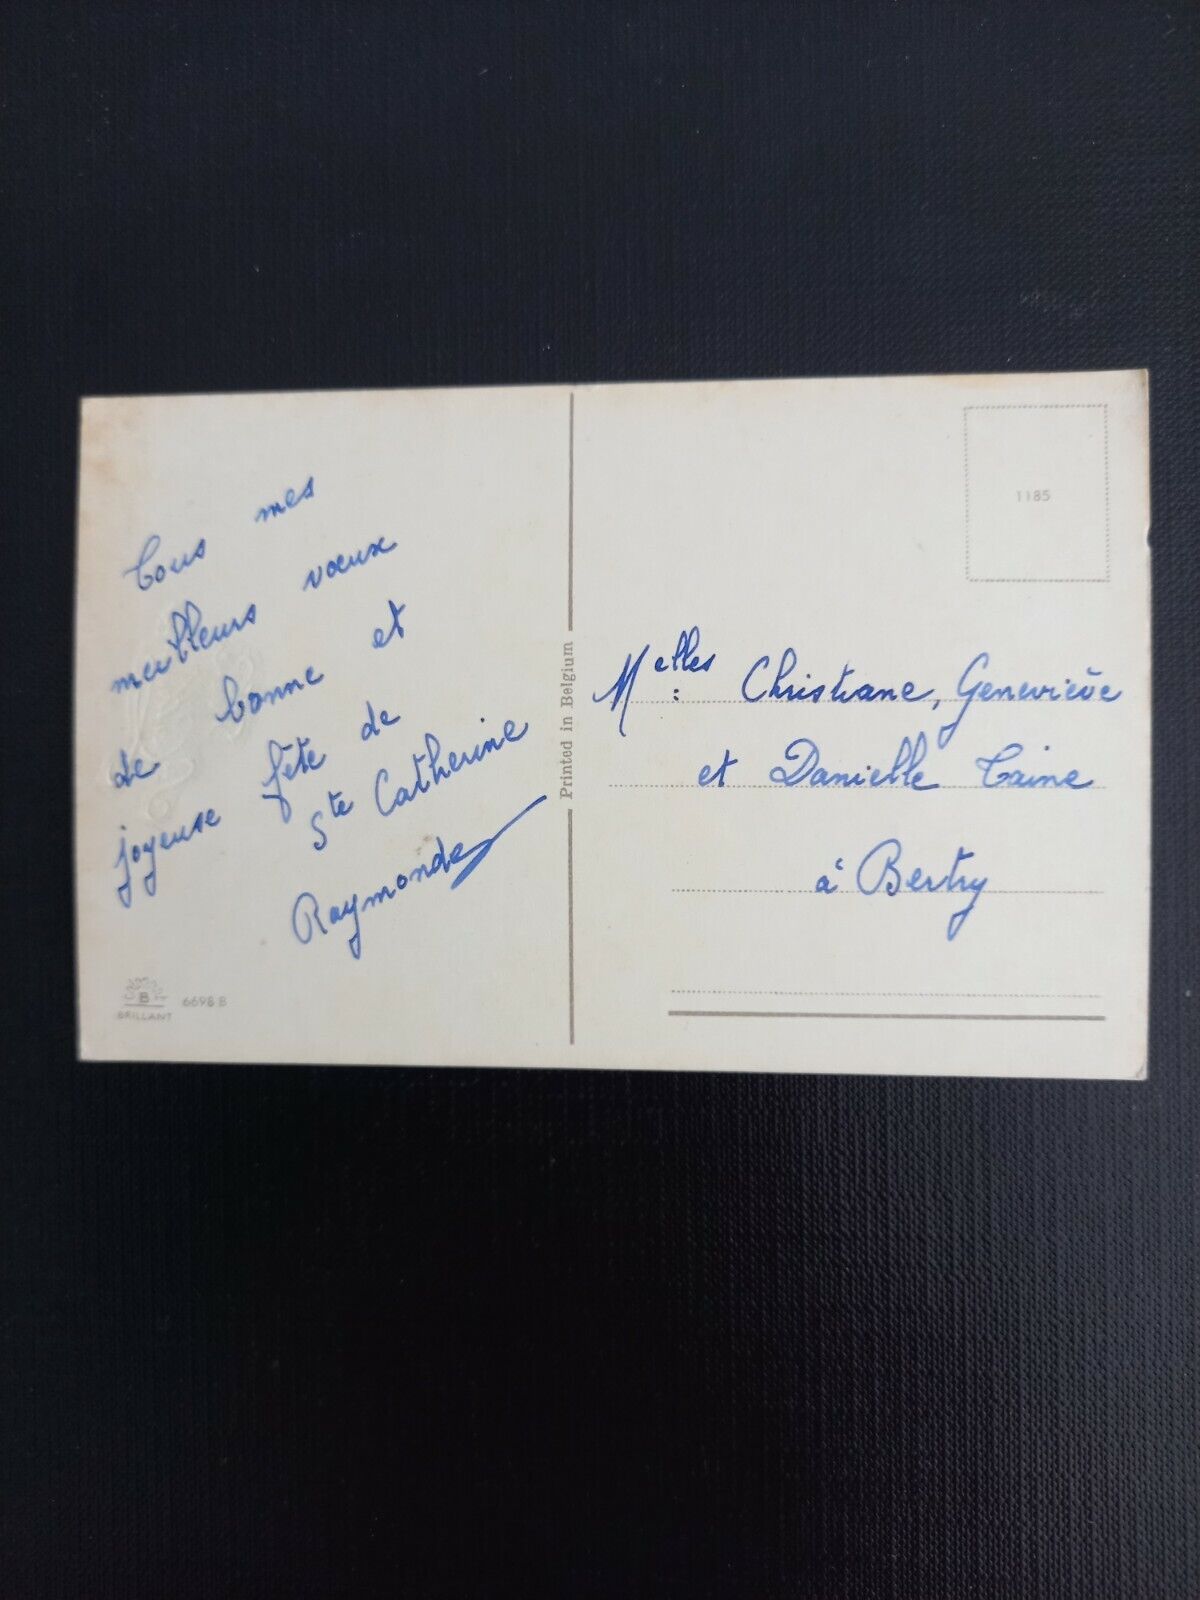 Tous mes
meilleurs vœux
de bonne et
joyeuse fête de
Ste Catherine
Raymonde
B
BRILLANT
6698 B
Printed in Belgium
1185
Melles : Christiane, Geneviève
et Danielle Taine
à Bertry